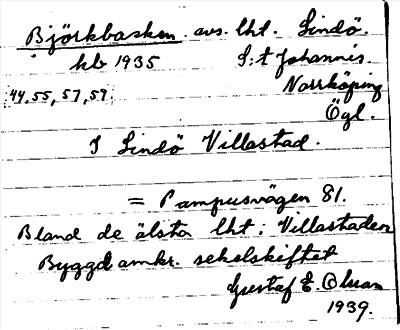 Björkbacken. avs. lht. Lindö.
kb 1935 S:t Johannis.
44,55,57,59 Norrköping
Ögl.
I Lindö Villastad.
= Pampusvägen 81.
Bland de älsta lht i Villastaden
Byggd omkr. sekelskiftet
Gustaf E.
1939.